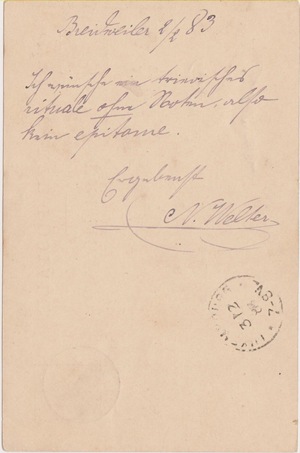 Breidweiler 2/2 83
Ich wünsche ein trierisches
rituale ohne Noten, also
kein epitome.
Ergebenst
N. Welter
3 2